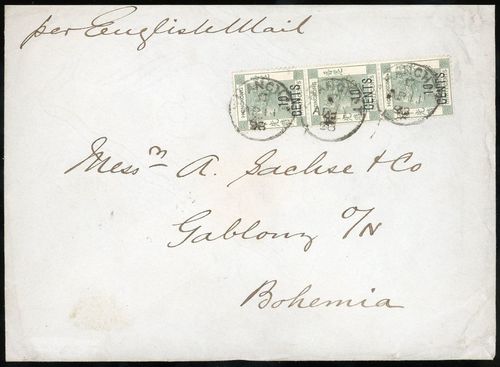 per English Mail
10 CENTS. 10 CENTS. 10 CENTS.
Messrs A. Sachse & Co
Gablonz o/N
Bohemia